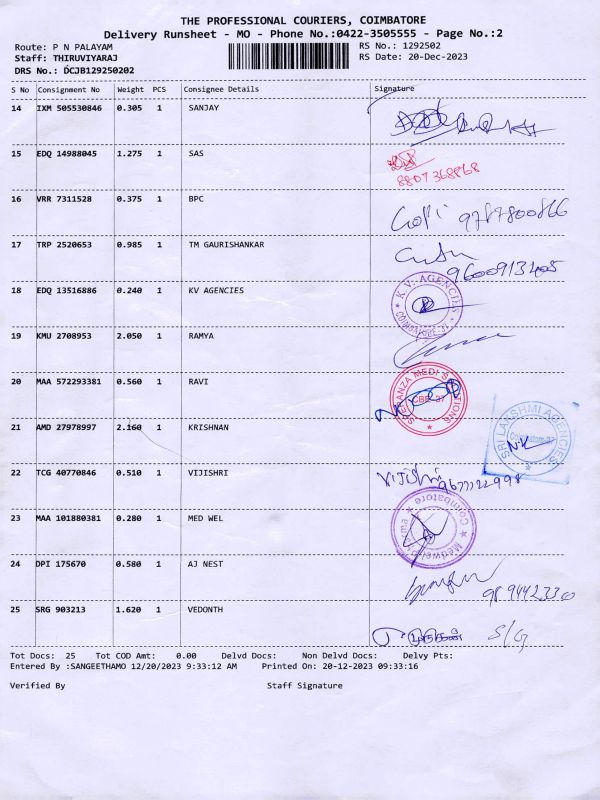 THE PROFESSIONAL COURIERS, COIMBATORE
Delivery Runsheet - MO - Phone No.:0422-3505555 - Page No.:2
Route: P N PALAYAM RS No.: 1292502
Staff: THIRUVIYARAJ RS Date: 20-Dec-2023
DRS No.: DCJB129250202
S No Consignment No Weight PCS Consignee Details Signature
14 IXM 505530846 0.305 1 SANJAY
15 EDQ 14988045 1.275 1 SAS
8807368868
16 VRR 7311528 0.375 1 BPC
Gopi 9787800866
17 TRP 2520653 0.985 1 TM GAURISHANKAR
9600913405
18 EDQ 13516886 0.240 1 KV AGENCIES
K.V. AGENCIES
COIMBATORE-37
19 KMU 2708953 2.050 1 RAMYA
20 MAA 572293381 0.560 1 RAVI
CBE-37
21 AMD 27978997 2.160 1 KRISHNAN
SRI LAKSHMI AGENCIES
N.K
22 TCG 40770846 0.510 1 VIJISHRI
Vijishri 9677722998
23 MAA 101880381 0.280 1 MED WEL
Coimbatore
24 DPI 175670 0.580 1 AJ NEST
25 SRG 903213 1.620 1 VEDONTH
S/G
Tot Docs: 25 Tot COD Amt: 0.00 Delvd Docs: Non Delvd Docs: Delvy Pts:
Entered By :SANGEETHAMO 12/20/2023 9:33:12 AM Printed On: 20-12-2023 09:33:16
Verified By Staff Signature